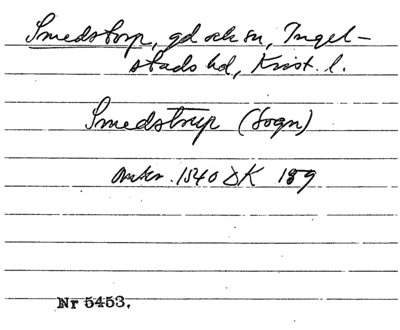 Smedstorp, gd och sn, Ingel-
stads hd, Krist. l.
Smedstrup (Sogn)
omkr. 1540 DK 189
Nr 5453.